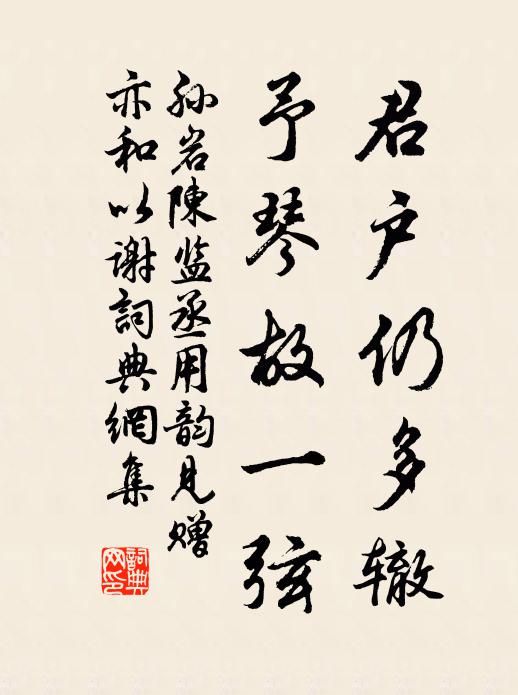 君户仍多辙
予琴故一弦
孙岩陳监丞用韵见赠
亦和以谢詞典網集
詞典网印